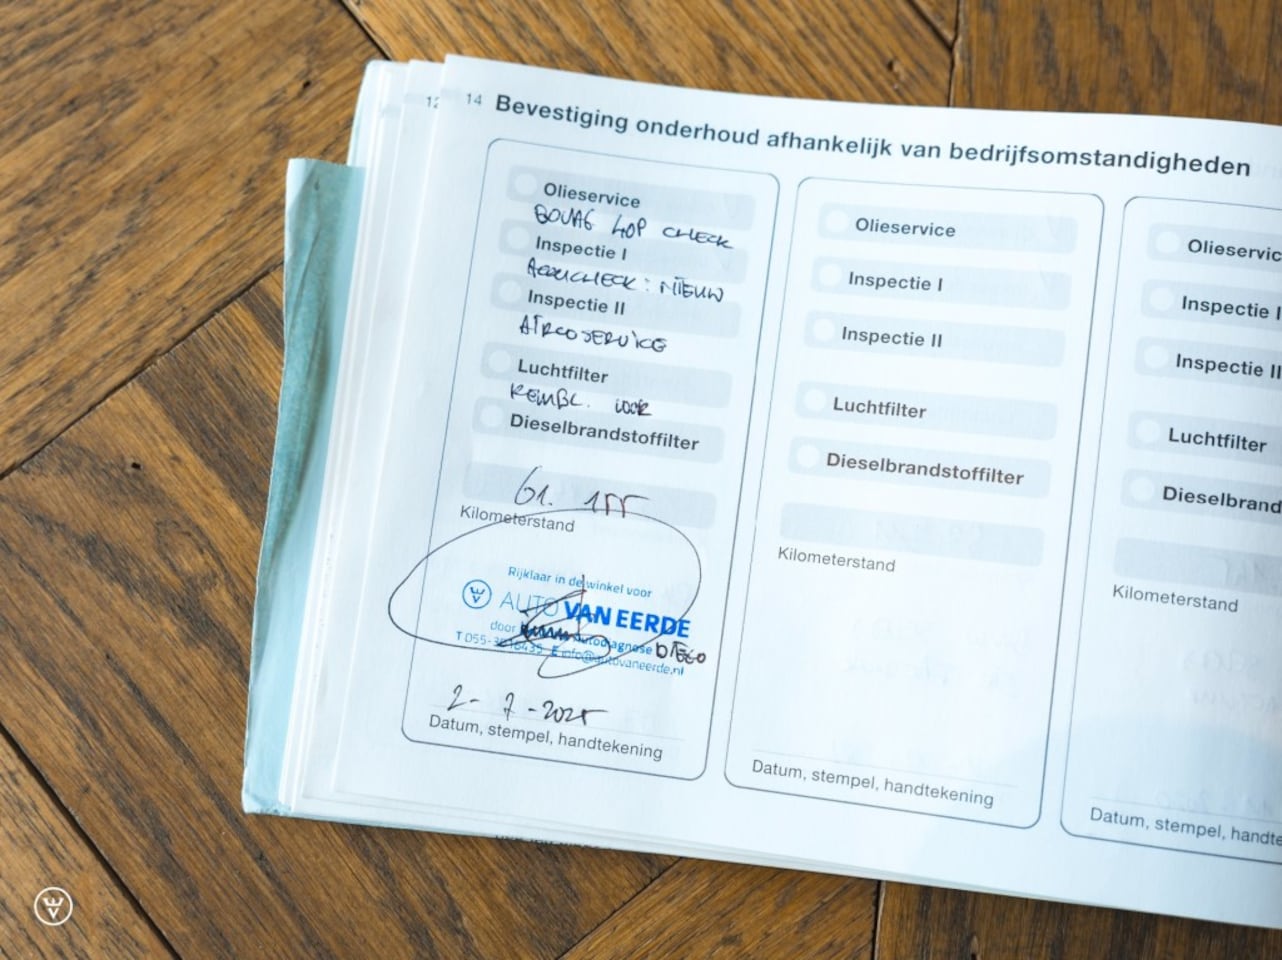 12
14 Bevestiging onderhoud afhankelijk van bedrijfsomstandigheden
Olieservice
BOVAG 40P CHECK
Inspectie I
ACCUCHECK: NIEUW
Inspectie II
AIRCOSERVICE
Luchtfilter
REMBL. VOOR
Dieselbrandstoffilter
61.155
Kilometerstand
Rijklaar in de winkel voor
AUTO VAN EERDE
door autodiagnose
T 055- E info@autovaneerde.nl
2-7-2025
Datum, stempel, handtekening
Olieservice
Inspectie I
Inspectie II
Luchtfilter
Dieselbrandstoffilter
Kilometerstand
Datum, stempel, handtekening
Olieservic
Inspectie I
Inspectie II
Luchtfilter
Dieselbrand
Kilometerstand
Datum, stempel, handte